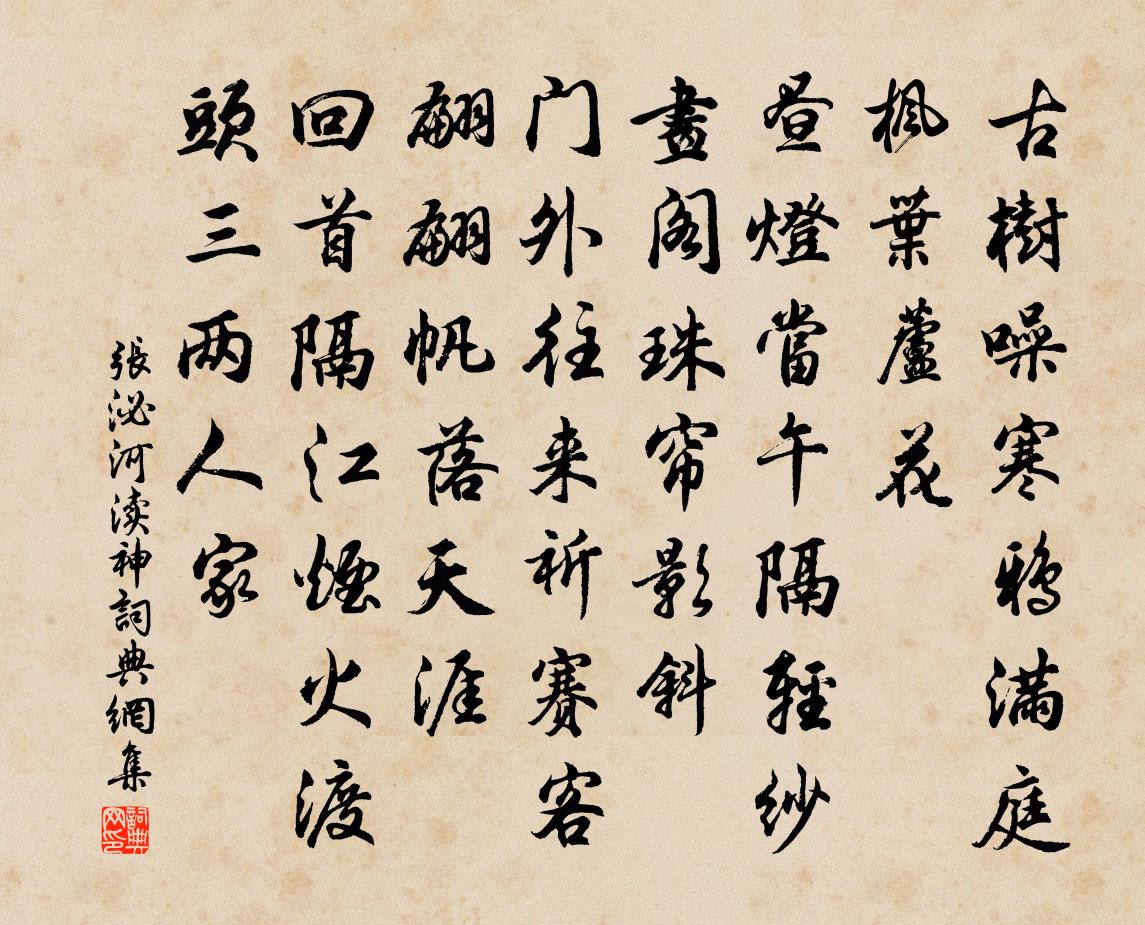 古樹噪寒鴉滿庭
楓葉蘆花
昼燈當午隔輕紗
畫閣珠帘影斜
门外往来祈賽客
翩翩帆落天涯
回首隔江煙火渡
頭三两人家
張泌河渎神詞典網集
詞典网印